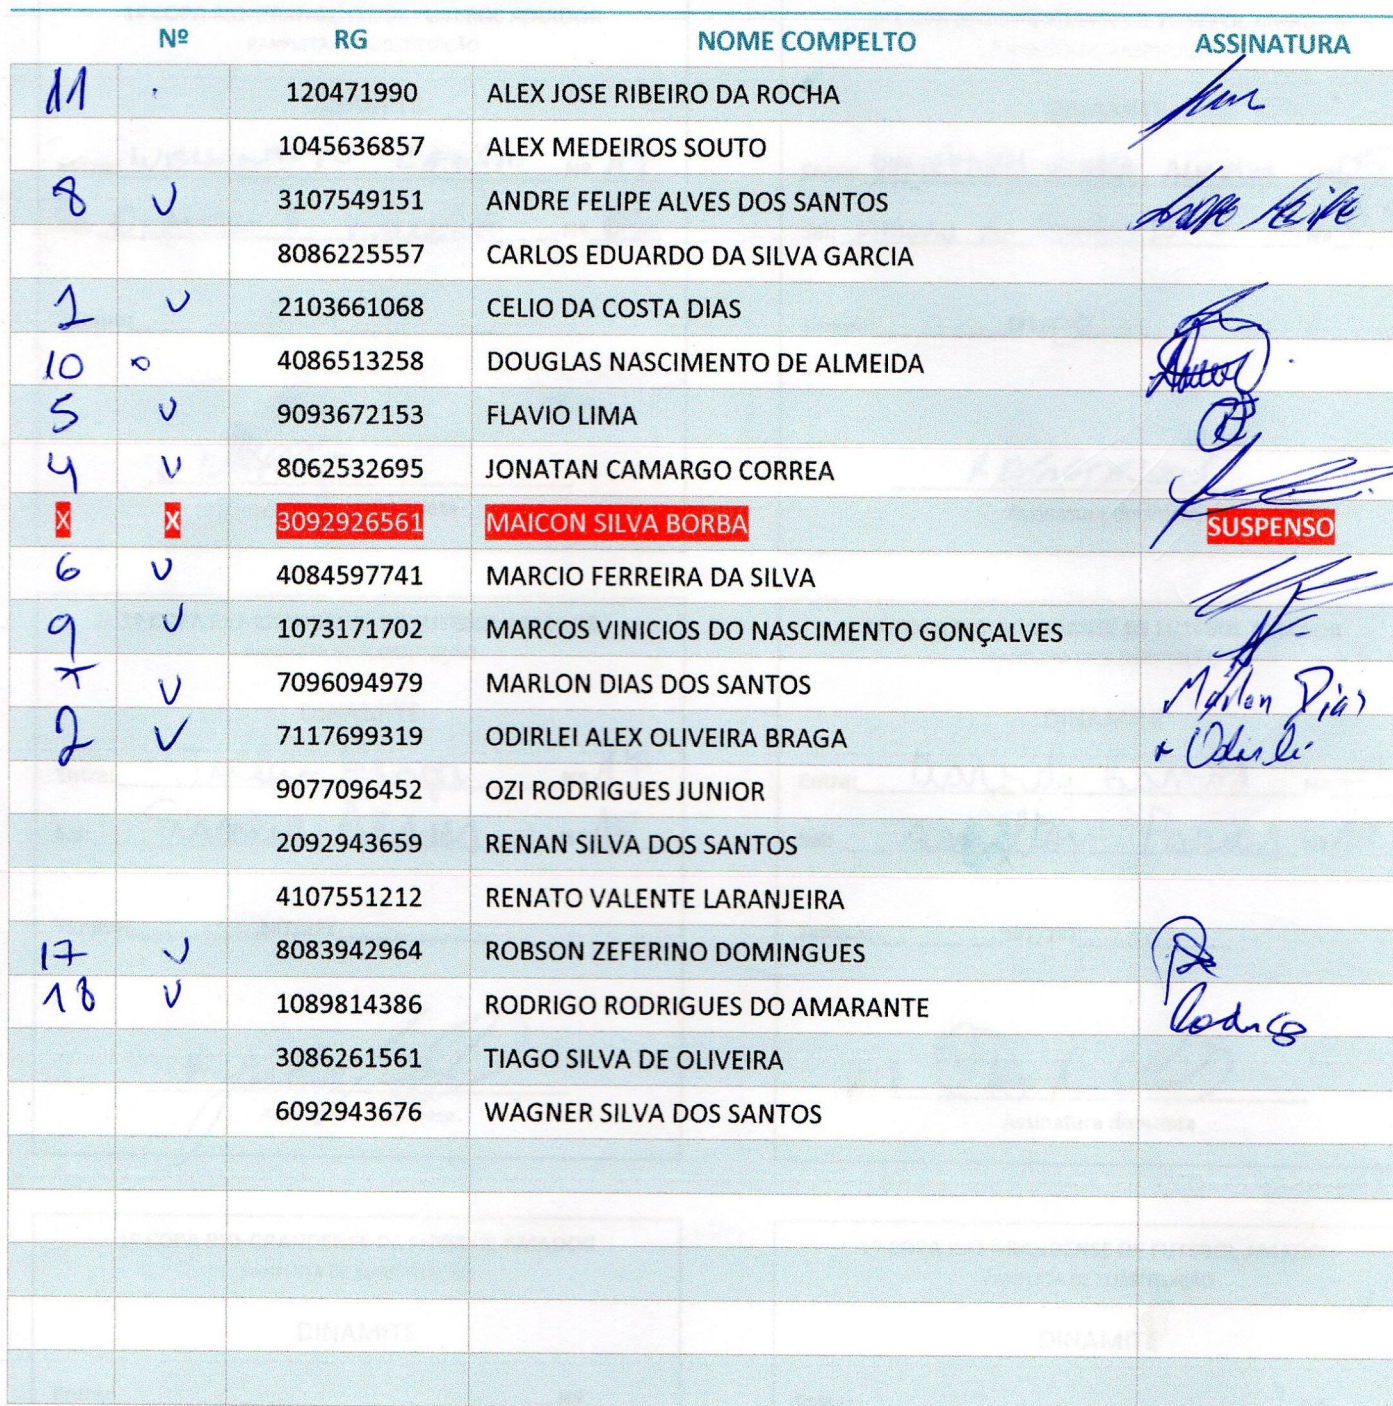 Nº RG NOME COMPELTO ASSINATURA
11 120471990 ALEX JOSE RIBEIRO DA ROCHA
1045636857 ALEX MEDEIROS SOUTO
8 V 3107549151 ANDRE FELIPE ALVES DOS SANTOS Andre Felipe
8086225557 CARLOS EDUARDO DA SILVA GARCIA
1 V 2103661068 CELIO DA COSTA DIAS
10 4086513258 DOUGLAS NASCIMENTO DE ALMEIDA
5 V 9093672153 FLAVIO LIMA
4 V 8062532695 JONATAN CAMARGO CORREA
X X 3092926561 MAICON SILVA BORBA SUSPENSO
6 V 4084597741 MARCIO FERREIRA DA SILVA
9 V 1073171702 MARCOS VINICIOS DO NASCIMENTO GONÇALVES
7 V 7096094979 MARLON DIAS DOS SANTOS Marlon Dias
2 V 7117699319 ODIRLEI ALEX OLIVEIRA BRAGA Odirlei
9077096452 OZI RODRIGUES JUNIOR
2092943659 RENAN SILVA DOS SANTOS
4107551212 RENATO VALENTE LARANJEIRA
17 V 8083942964 ROBSON ZEFERINO DOMINGUES
18 V 1089814386 RODRIGO RODRIGUES DO AMARANTE Rodrigo
3086261561 TIAGO SILVA DE OLIVEIRA
6092943676 WAGNER SILVA DOS SANTOS
DINAMITE DINAMITE